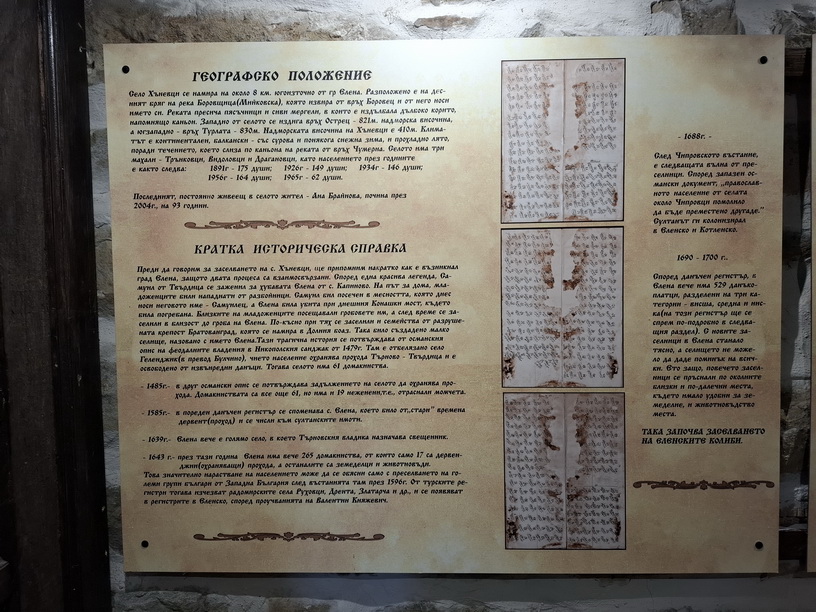 ГЕОГРАФСКО ПОЛОЖЕНИЕ
Село Хъневци се намира на около 8 км. югоизточно от гр Елена. Разположено е на дес-
ният бряг на река Боровщица(Мийковска), която извира от връх Боровец и от него носи
името си. Реката пресича пясъчници и сиви мергели, в които е издълбала дълбоко корито,
напомнящо каньон. Западно от селото се издига връх Острец - 821м. надморска височина,
а югзападно - връх Турлата - 830м. Надморската височина на Хъневци е 410м. Клима-
тът е континентален, балкански - със сурова и понякога снежна зима, и прохладно лято,
поради течението, което слиза по каньона на реката от връх Чумерна. Селото има три
махали - Трънковци, Видоловци и Драгановци, като населението през годините
е както следва: 1891г - 175 души; 1926г - 149 души; 1934г - 146 души;
1956г - 164 души; 1965г - 62 души.
Последният, постоянно живеещ в селото жител - Ана Брайнова, почина през
2004г., на 93 години.
КРАТКА ИСТОРИЧЕСКА СПРАВКА
Преди да говорим за заселването на с. Хъневци, ще припомним накратко как е възникнал
град Елена, защото двата процеса са взаимосвързани. Според една красива легенда, Са-
муил от Твърдица се заженил за хубавата Елена от с. Капиново. На път за дома, мла-
доженците били нападнати от разбойници. Самуил бил посечен в месността, която днес
носи неговото име - Самунлец, а Елена била убита при днешния Конашки мост, където
била погребана. Близките на младоженците посещавали гробовете им, а след време се за-
селили в близост до гроба на Елена. По-късно при тях се заселили и семейства от разруше-
ната крепост Братованград, която се намира в Долния боаз. Така било създадено малко
селище, назовано с името Елена.Тази трагична история се потвърждава от османския
опис на феодалните владения в Никополския санджак от 1479г. Там е отбелязано село
Геленджик(в превод Булчино), чието население охранява прохода Търново - Твърдица и е
освободено от извънредни данъци. Тогава селото има 61 домакинства.
- 1485г.- в друг османски опис се потвърждава задължението на селото да охранява про-
хода. Домакинствата са все още 61, но има и 19 неженени,т.е., отраснали момчета.
- 1585г.- в пореден данъчен регистър се споменава с. Елена, което било от„стари" времена
дервент(проход) и се числи към султанските имоти.
- 1639г.- Елена вече е голямо село, в което Търновския владика назначава свещенник.
- 1643 г.- през тази година Елена има вече 265 домакинства, от които само 17 са дервен-
джии(охраняващи) прохода, а останалите са земеделци и животновъди.
Това значително нарастване на населението може да се обясни само с преселването на го-
леми групи българи от Западна България след въстанията там през 1596г. От турските ре-
гистри тогава изчезват радомирските села Руховци, Дрента, Златарча и др., и се появяват
в регистрите в Еленско, според проучванията на Валентин Кнежевич.
- 1688г. -
След Чипровското въстание,
е следващата вълна от пре-
селници. Според запазен ос-
мански документ, „православ-
ното население от селата
около Чипровци помолило
да бъде преместено другаде."
Султанът ги колонизирал
в Еленско и Котленско.
1690 - 1700 г..
Според данъчен регистър, в
Елена вече има 529 данъко-
платци, разделени на три ка-
тегории - висша, средна и нис-
ка(на този регистър ще се
спрем по-подробно в следва-
щия раздел). С новите за-
селници в Елена станало
тясно, а селището не може-
ло да даде поминък на всич-
ки. Ето защо, повечето засел-
ници се пръснали по околните
близки и по-далечни места,
където имало удобни за зе-
меделие, и животновъдство
места.
ТАКА ЗАПОЧВА ЗАСЕЛВАНЕТО
НА ЕЛЕНСКИТЕ КОЛИБИ.